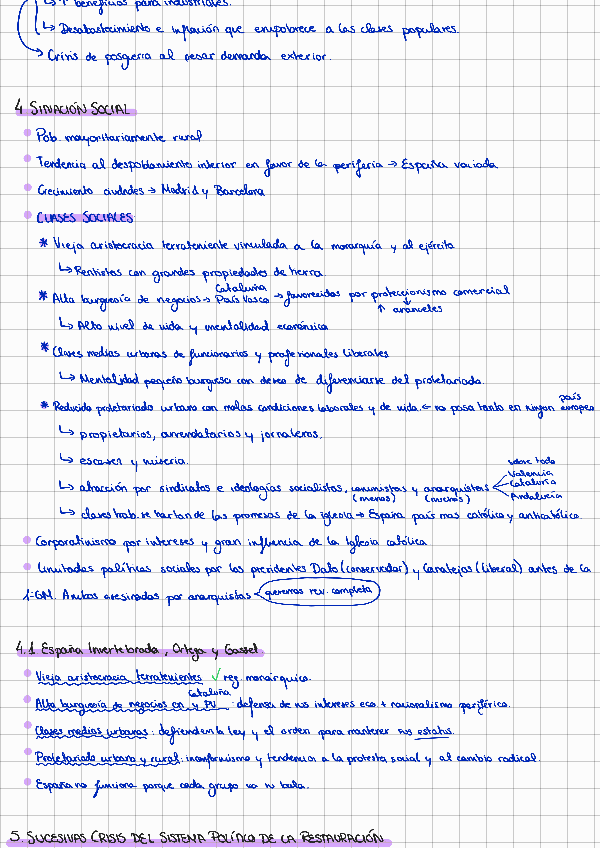 ↳ ↑ beneficios para industriales.
↳ Desabastecimiento e inflación que empobrece a las clases populares.
Crisis de posgerra al cesar demanda exterior.
4 SITUACIÓN SOCIAL
Pob. mayoritariamente rural
Tendencia al despoblamiento interior en favor de la periferia → España vaciada
Crecimiento ciudades → Madrid y Barcelona
CLASES SOCIALES
* Vieja aristocracia terrateniente vinculada a la monarquía y al ejército
↳ Rentistas con grandes propiedades de tierra.
Cataluña
* Alta burguesía de negocios → País Vasco → favorecidas por proteccionismo comercial
↑ aranceles
↳ Alto nivel de vida y mentalidad económica
* Clases medias urbanas de funcionarios y profesionales liberales
↳ Mentalidad pequeño burguesa con deseo de diferenciarse del proletariado.
país
* Reducido proletariado urbano con malas condiciones laborales y de vida. ← no pasa tanto en ningun europeo
↳ propietarios, arrendatarios y jornaleros.
↳ escasez y miseria.
sobre todo
Valencia
↳ atracción por sindicatos e ideologías socialistas, comunistas y anarquistas Cataluña
(menos) (muchos) Andalucía
↳ clases trab. se hartan de las promesas de la iglesia → España país mas católico y anticatólico.
Corporativismo por intereses y gran influencia de la Iglesia católica
Limitadas políticas sociales por los presidentes Dato (conservador) y Canalejas (liberal) antes de la
1ªGM. Ambos asesinados por anarquistas queremos rev. completa
4.1 España Invertebrada, Ortega y Gasset
Vieja aristocracia terratenientes ✓ reg. monárquico.
Cataluña
Alta burguesía de negocios en y PV : defensa de sus intereses eco + nacionalismo periférico.
Clases medias urbanas : defienden la ley y el orden para mantener sus estatus.
Proletariado urbano y rural : inconformismo y tendencia a la protesta social y al cambio radical.
España no funciona porque cada grupo va a su bola.
5. SUCESIVAS CRISIS DEL SISTEMA POLÍTICO DE LA RESTAURACIÓN